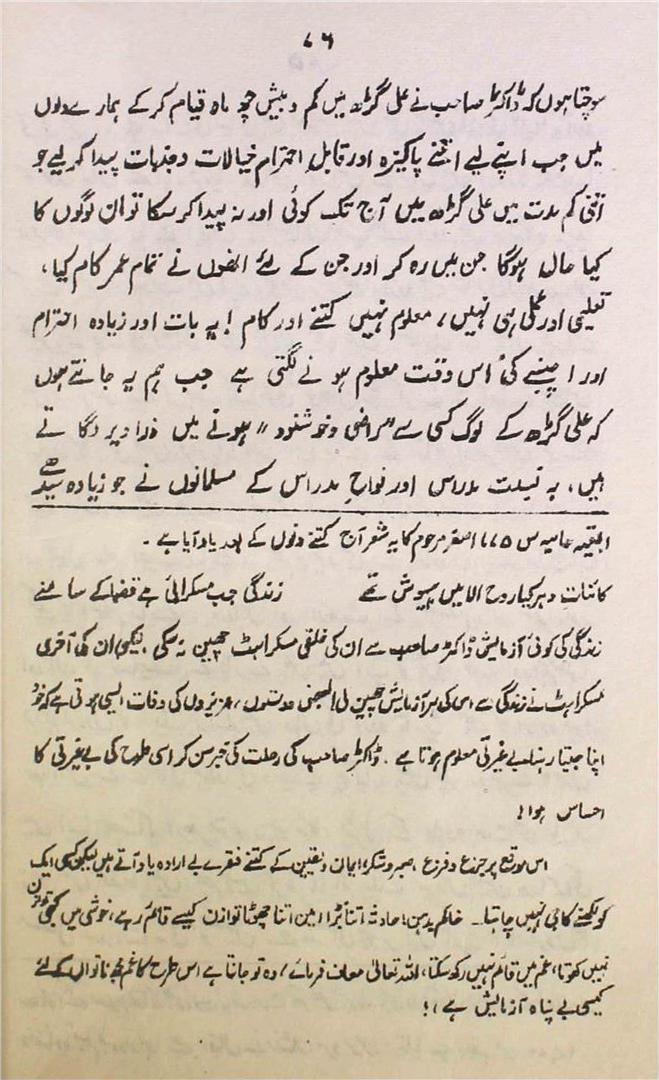 ۷۶
سوچتا ہوں کہ ڈاکٹر صاحب نے علی گڑھ میں کم و بیش چھ ماہ قیام کرکے ہمارے دلوں
میں جب اپنے لیے اتنے پاکیزہ اور قابل احترام خیالات و جذبات پیدا کر لیے جو
اتنی کم مدت میں علی گڑھ میں آج تک کوئی اور نہ پیدا کر سکا تو ان لوگوں کا
کیا حال ہوگا جن میں رہ کر اور جن کے لئے انھوں نے تمام عمر کام کیا،
تعلیمی اور عملی ہی نہیں، معلوم نہیں کتنے اور کام! یہ بات اور زیادہ احترام
اور اچنبھے کی اس وقت معلوم ہونے لگتی ہے جب ہم یہ جانتے ہوں
کہ علی گڑھ کے لوگ کسی سے "راضی و خوشنود" ہونے میں ذرا دیر لگاتے
ہیں، یہ نسبت مدراس اور نواحِ مدراس کے مسلمانوں نے جو زیادہ سیدھے
(بقیہ حاشیہ ص ۷۵) اصغر مرحوم کا یہ شعر آج کتنے دنوں کے بعد یاد آیا ہے۔
کائناتِ دہر کیا روح الامیں بیہوش تھے زندگی جب مسکرائی ہے قضا کے سامنے
زندگی کی کوئی آزمایش ڈاکٹر صاحب سے ان کی خلقی مسکراہٹ چھین نہ سکی، لیکن ان کی آخری
مسکراہٹ نے زندگی سے اس کی ہر آزمایش چھین لی! بعض دوستوں، عزیزوں کی وفات ایسی ہوتی ہے کہ خود
اپنا جیتا رہنا بے غیرتی معلوم ہوتا ہے۔ ڈاکٹر صاحب کی رحلت کی خبر سن کر اسی طرح کی بے غیرتی کا
احساس ہوا!
اس موقع پر جزع و فزع، صبر و شکر، ایمان و یقین کے کتنے فقرے بے ارادہ یاد آتے ہیں لیکن کسی ایک
کو لکھنے کا جی نہیں چاہتا۔ خاکم بدہن! حادثہ اتنا بڑا، میں اتنا چھوٹا توازن کیسے قائم رہے، خوشی میں کبھی توازن
نہیں کھوتا، غم میں قائم نہیں رکھ سکتا، اللہ تعالیٰ معاف فرمائے! وہ تو جانتا ہے اس طرح کا غم ناتواں کے لئے
کیسی بے پناہ آزمایش ہے،!